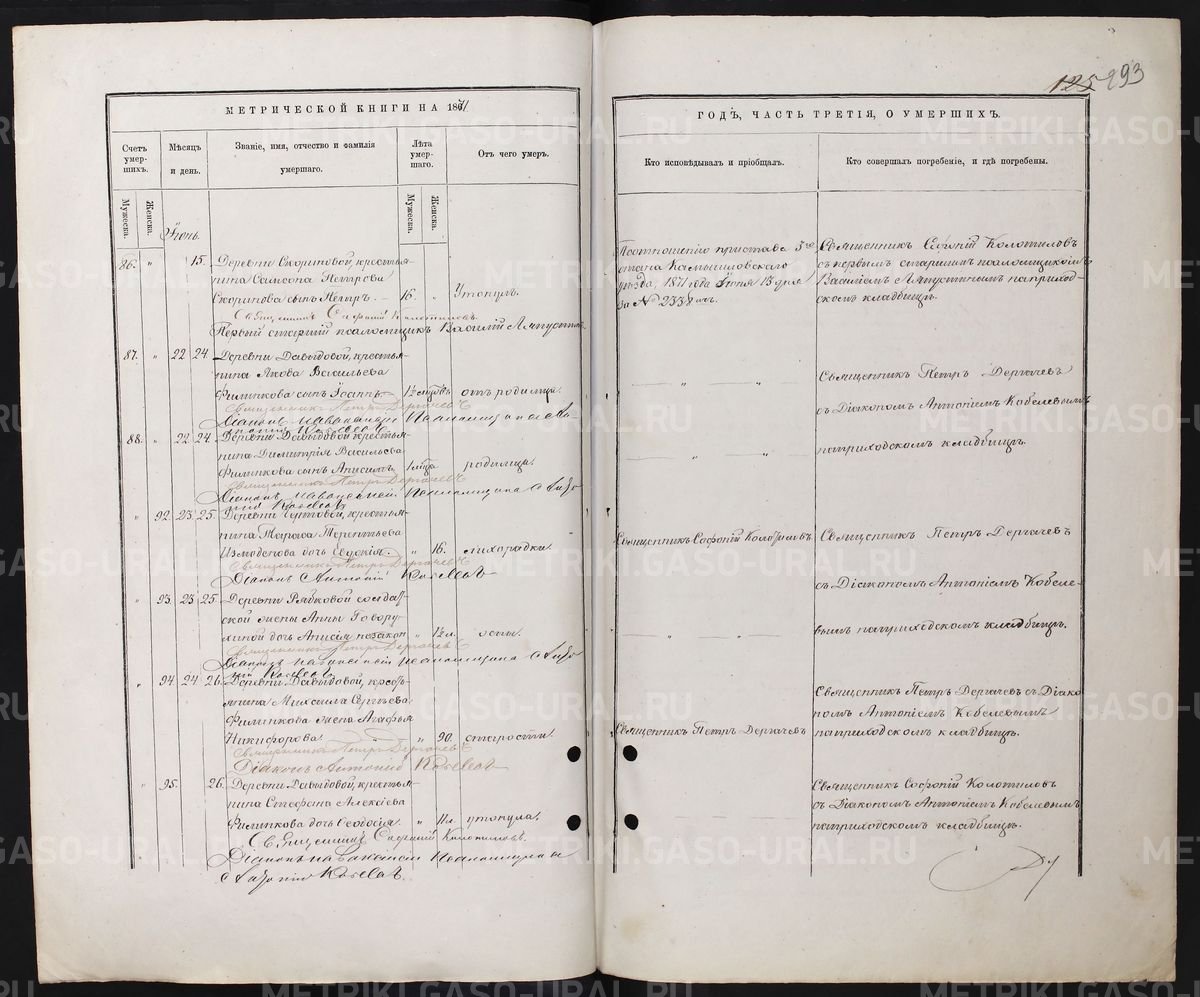 125 293
МЕТРИЧЕСКОЙ КНИГИ НА 1871
Счетъ умер- шихъ.
Мѣсяцъ и день.
Званіе, имя, отчество и фамилія умершаго.
Лѣта умер- шаго.
Отъ чего умеръ.
Мужеска.
Женска.
Мужеска.
Женска.
Іюнь.
86. " 15. Деревни Скориновой, крестья-
нина Самсона Петрова
Скоринова сынъ Петръ. 16. " Утонулъ.
Священникъ Софоній Колотиловъ.
Первый старшій псаломщикъ Василій Ляпустинъ
87. " 22 24. Деревни Давыдовой, крестья-
нина Якова Васильева
Филинкова сынъ Іоаннъ 1½ " отъ родимца.
Священникъ Петръ Дергачевъ
Діаконъ на вакансіи Псаломщика Ан-
тоній Кобелевъ
88. " 22 24. Деревни Давыдовой крестья-
нина Димитрія Васильева
Филинкова сынъ Анисимъ " родимца.
Священникъ Петръ Дергачевъ
Діаконъ на вакансіи Псаломщика Анто-
ній Кобелевъ
" 92. 23 25. Деревни крестья-
нина Тараса Терентьева
дочь Евдокія. " 16. лихорадки.
Священникъ Петръ Дергачевъ
Діаконъ Антоній Кобелевъ
" 93. 23 25. Деревни Рябковой солдат-
ской жены Анны Говору-
хиной дочь Анисія незакон. " 1½ л. оспы.
Священникъ Петръ Дергачевъ
Діаконъ на вакансіи псаломщика Анто-
ній Кобелевъ
" 94. 24 26. Деревни Давыдовой, кресть-
янина Михаила Сергѣева
Филинкова жена Агафья
Никифорова. " 90. старости.
Священникъ Петръ Дергачевъ
Діаконъ Антоній Кобелевъ
" 95. 26. Деревни Давыдовой, крестья-
нина Стефана Алексѣева
Филинкова дочь Ѳеодосія. " 11 л. утонула.
Священникъ Софоній Колотиловъ.
Діаконъ на вакансіи Псаломщика
Антоній Кобелевъ.
ГОДЪ, ЧАСТЬ ТРЕТІЯ, О УМЕРШИХЪ.
Кто исповѣдывалъ и пріобщалъ.
Кто совершалъ погребеніе, и гдѣ погребены.
По отношенію пристава 3го
стана Камышловскаго
уѣзда, 1871 года Іюня 13 дня
за № 2338
Священникъ Софоній Колотиловъ
съ первымъ старшимъ псаломщикомъ
Василіемъ Ляпустинымъ на приход-
скомъ кладбищѣ.
" " "
Священникъ Петръ Дергачевъ
съ Діакономъ Антоніемъ Кобелевымъ
" " "
на приходскомъ кладбищѣ.
Священникъ Софоній Колотиловъ
Священникъ Петръ Дергачевъ
съ Діакономъ Антоніемъ Кобеле-
" " "
вымъ на приходскомъ кладбищѣ.
Священникъ Петръ Дергачевъ
Священникъ Петръ Дергачевъ съ Діако-
номъ Антоніемъ Кобелевымъ
на приходскомъ кладбищѣ.
Священникъ Софоній Колотиловъ
съ Діакономъ Антоніемъ Кобелевымъ
на приходскомъ кладбищѣ.
METRIKI.GASO-URAL.RU